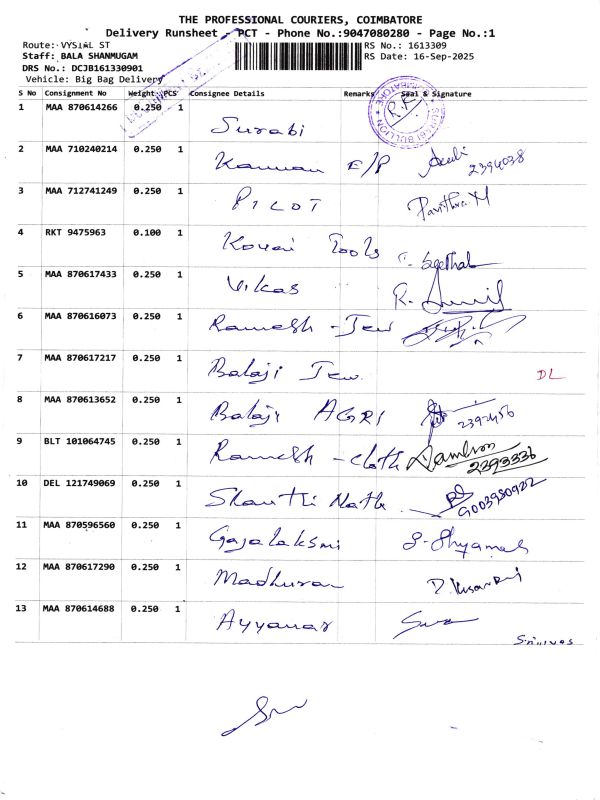 THE PROFESSIONAL COURIERS, COIMBATORE
Delivery Runsheet - PCT - Phone No.:9047080280 - Page No.:1
Route: VYSIAL ST RS No.: 1613309
Staff: BALA SHANMUGAM RS Date: 16-Sep-2025
DRS No.: DCJB161330901
Vehicle: Big Bag Delivery
S No Consignment No Weight PCS Consignee Details Remarks Seal & Signature
1 MAA 870614266 0.250 1 Surabi
2 MAA 710240214 0.250 1 Kannan E/P 2394038
3 MAA 712741249 0.250 1 PILOT Pavithra.M
4 RKT 9475963 0.100 1 Kovai Tools
5 MAA 870617433 0.250 1 Vikas
6 MAA 870616073 0.250 1 Ramesh - Jew
7 MAA 870617217 0.250 1 Balaji Jew. DL
8 MAA 870613652 0.250 1 Balaji AGRI
9 BLT 101064745 0.250 1 Ramesh - cloth 2393336
10 DEL 121749069 0.250 1 Shanthi Nath
11 MAA 870596560 0.250 1 Gajalaksmi
12 MAA 870617290 0.250 1
13 MAA 870614688 0.250 1 Ayyanar
Srinivas